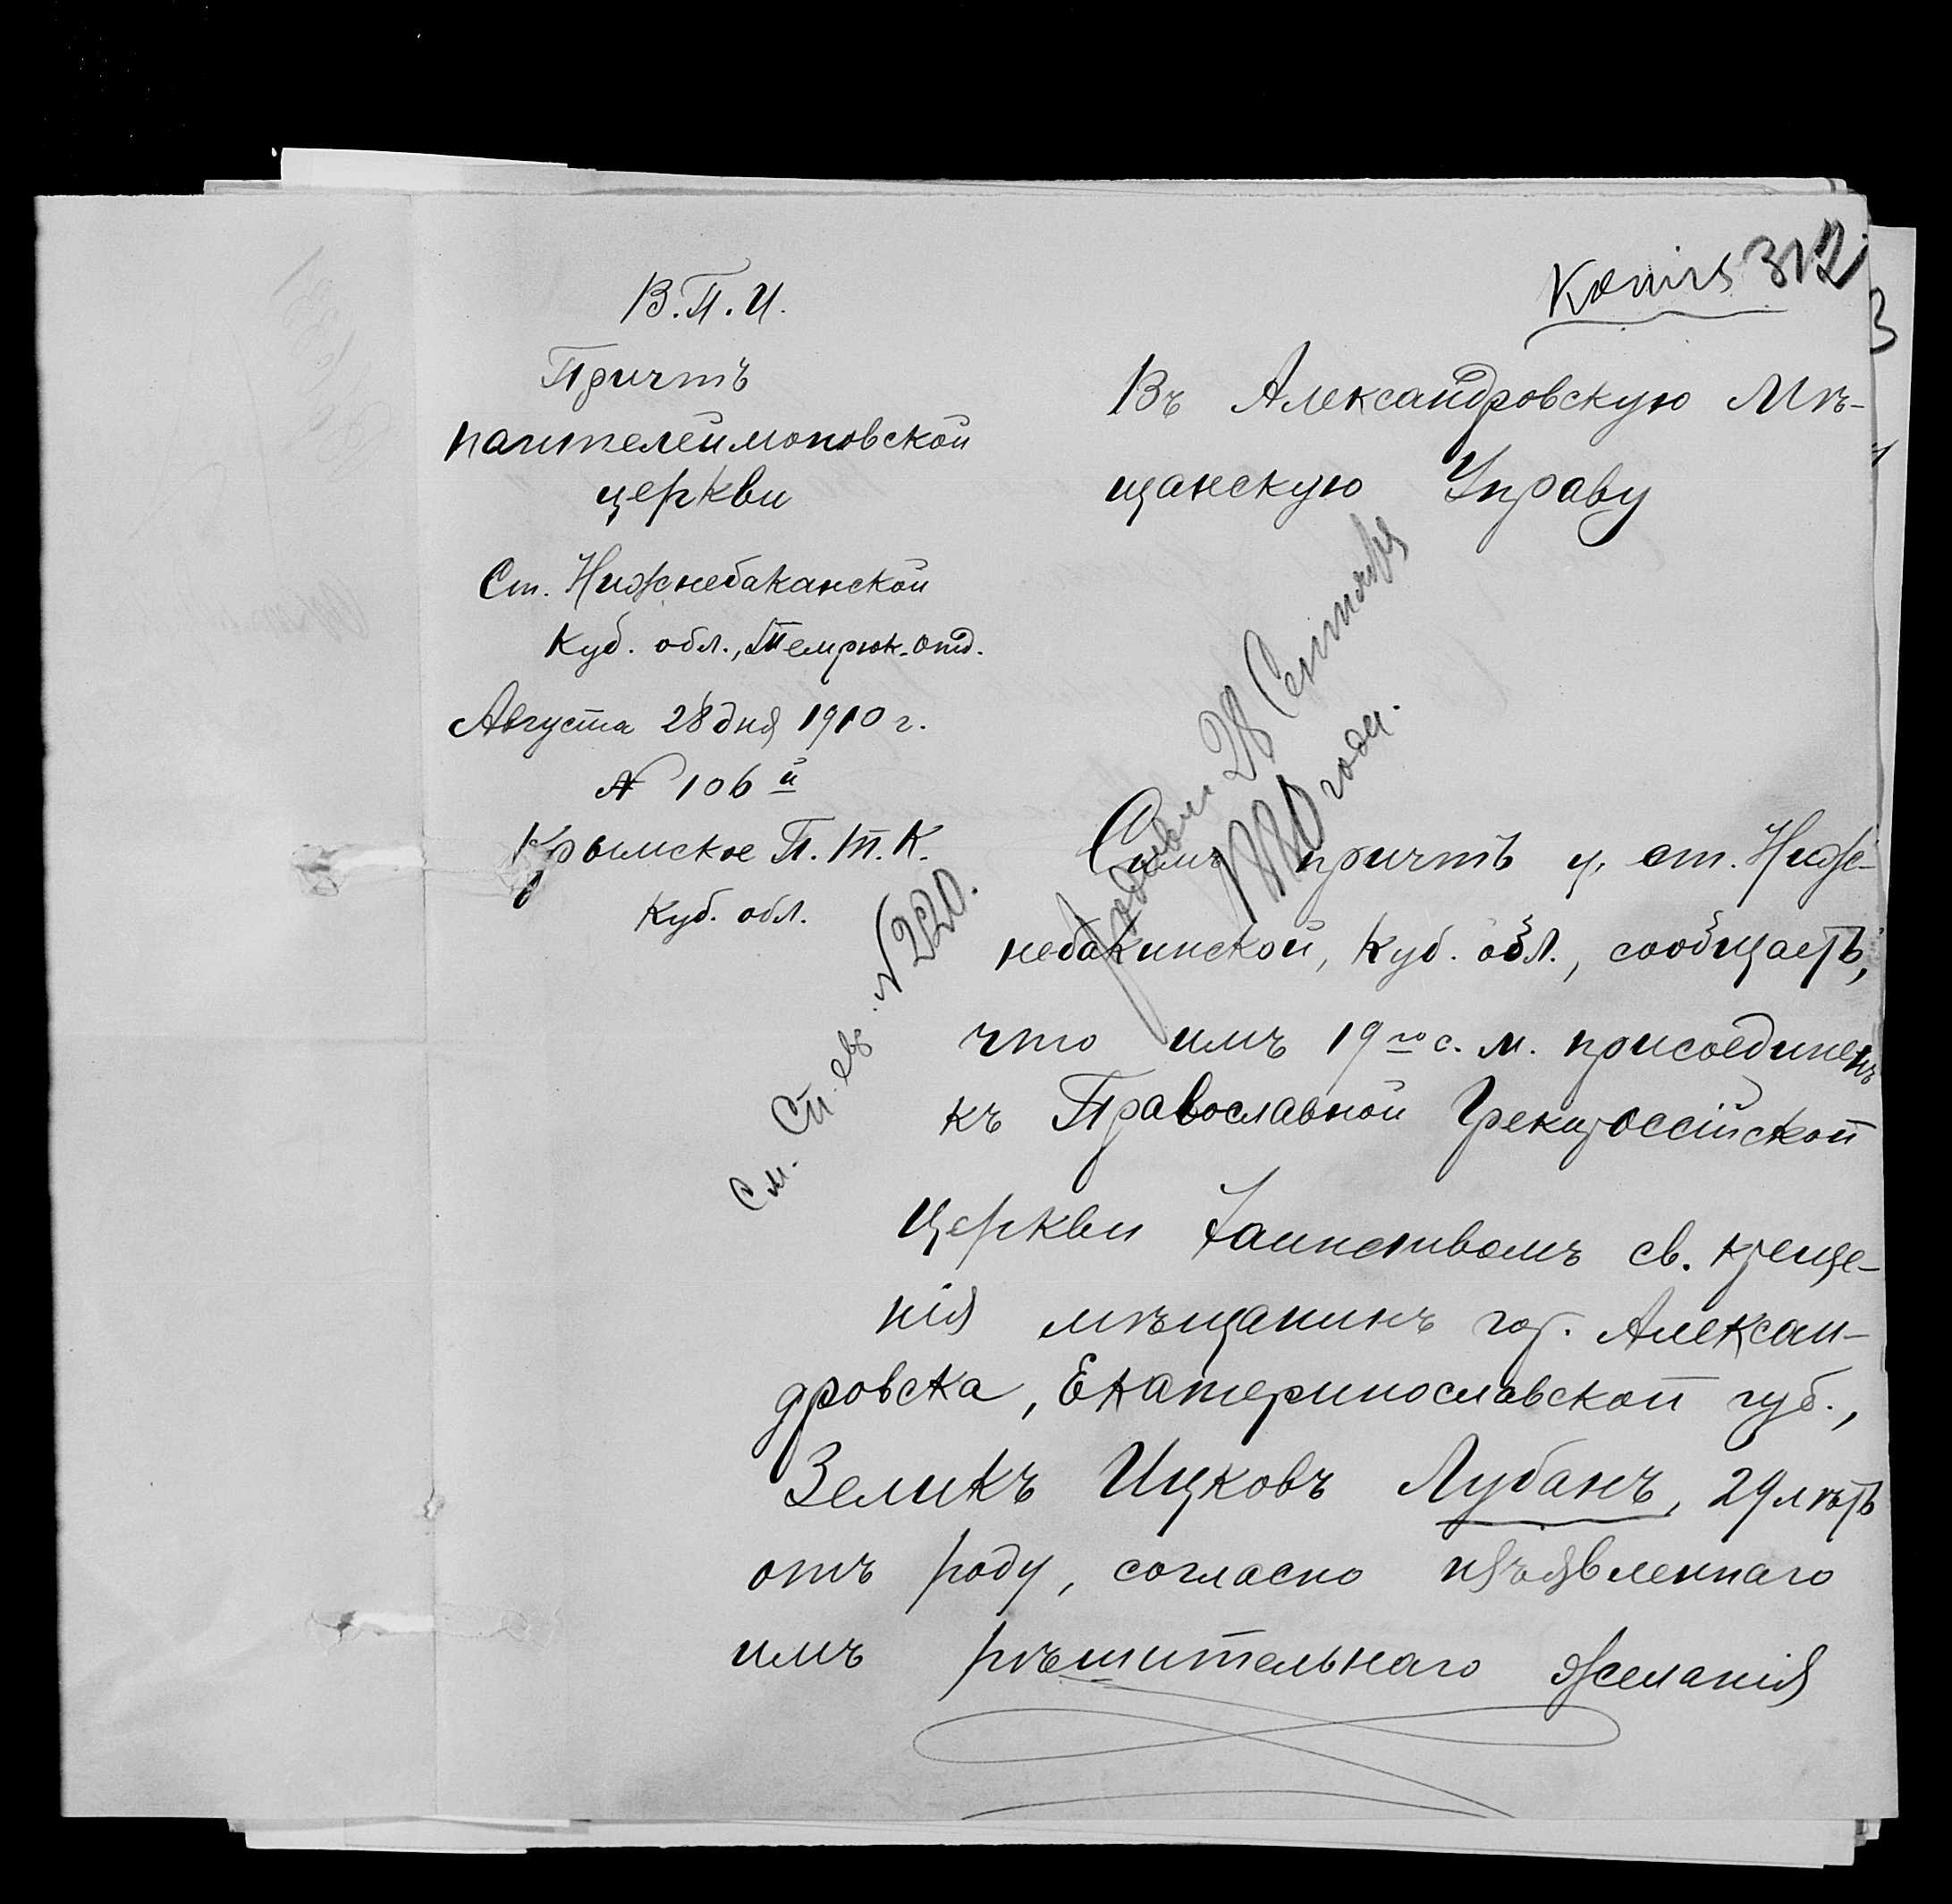 Копія 312
В.П.И.
Причтъ
пантелеимоновской
церкви
Ст. Нижнебаканской
Куб. обл., Темрюк. отд.
Августа 28 дня 1910 г.
№ 106й
Крымское П.Т.К.
Куб. обл.
Въ Александровскую Мѣ-
щанскую Управу
Родився 28 Сентября
1880 года.
См. Сп. евр. № 220.
Симъ причтъ ц. ст. Ниж-
небаканской, Куб. обл., сообщаетъ,
что имъ 19го с. м. присоединенъ
къ Православной Грекороссійской
Церкви Таинствомъ св. креще-
нія мѣщанинъ гор. Алексан-
дровска, Екатеринославской губ.,
Зеликъ Ицковъ Лубанъ, 29 лѣтъ
отъ роду, согласно изъявленнаго
имъ рѣшительнаго желанія